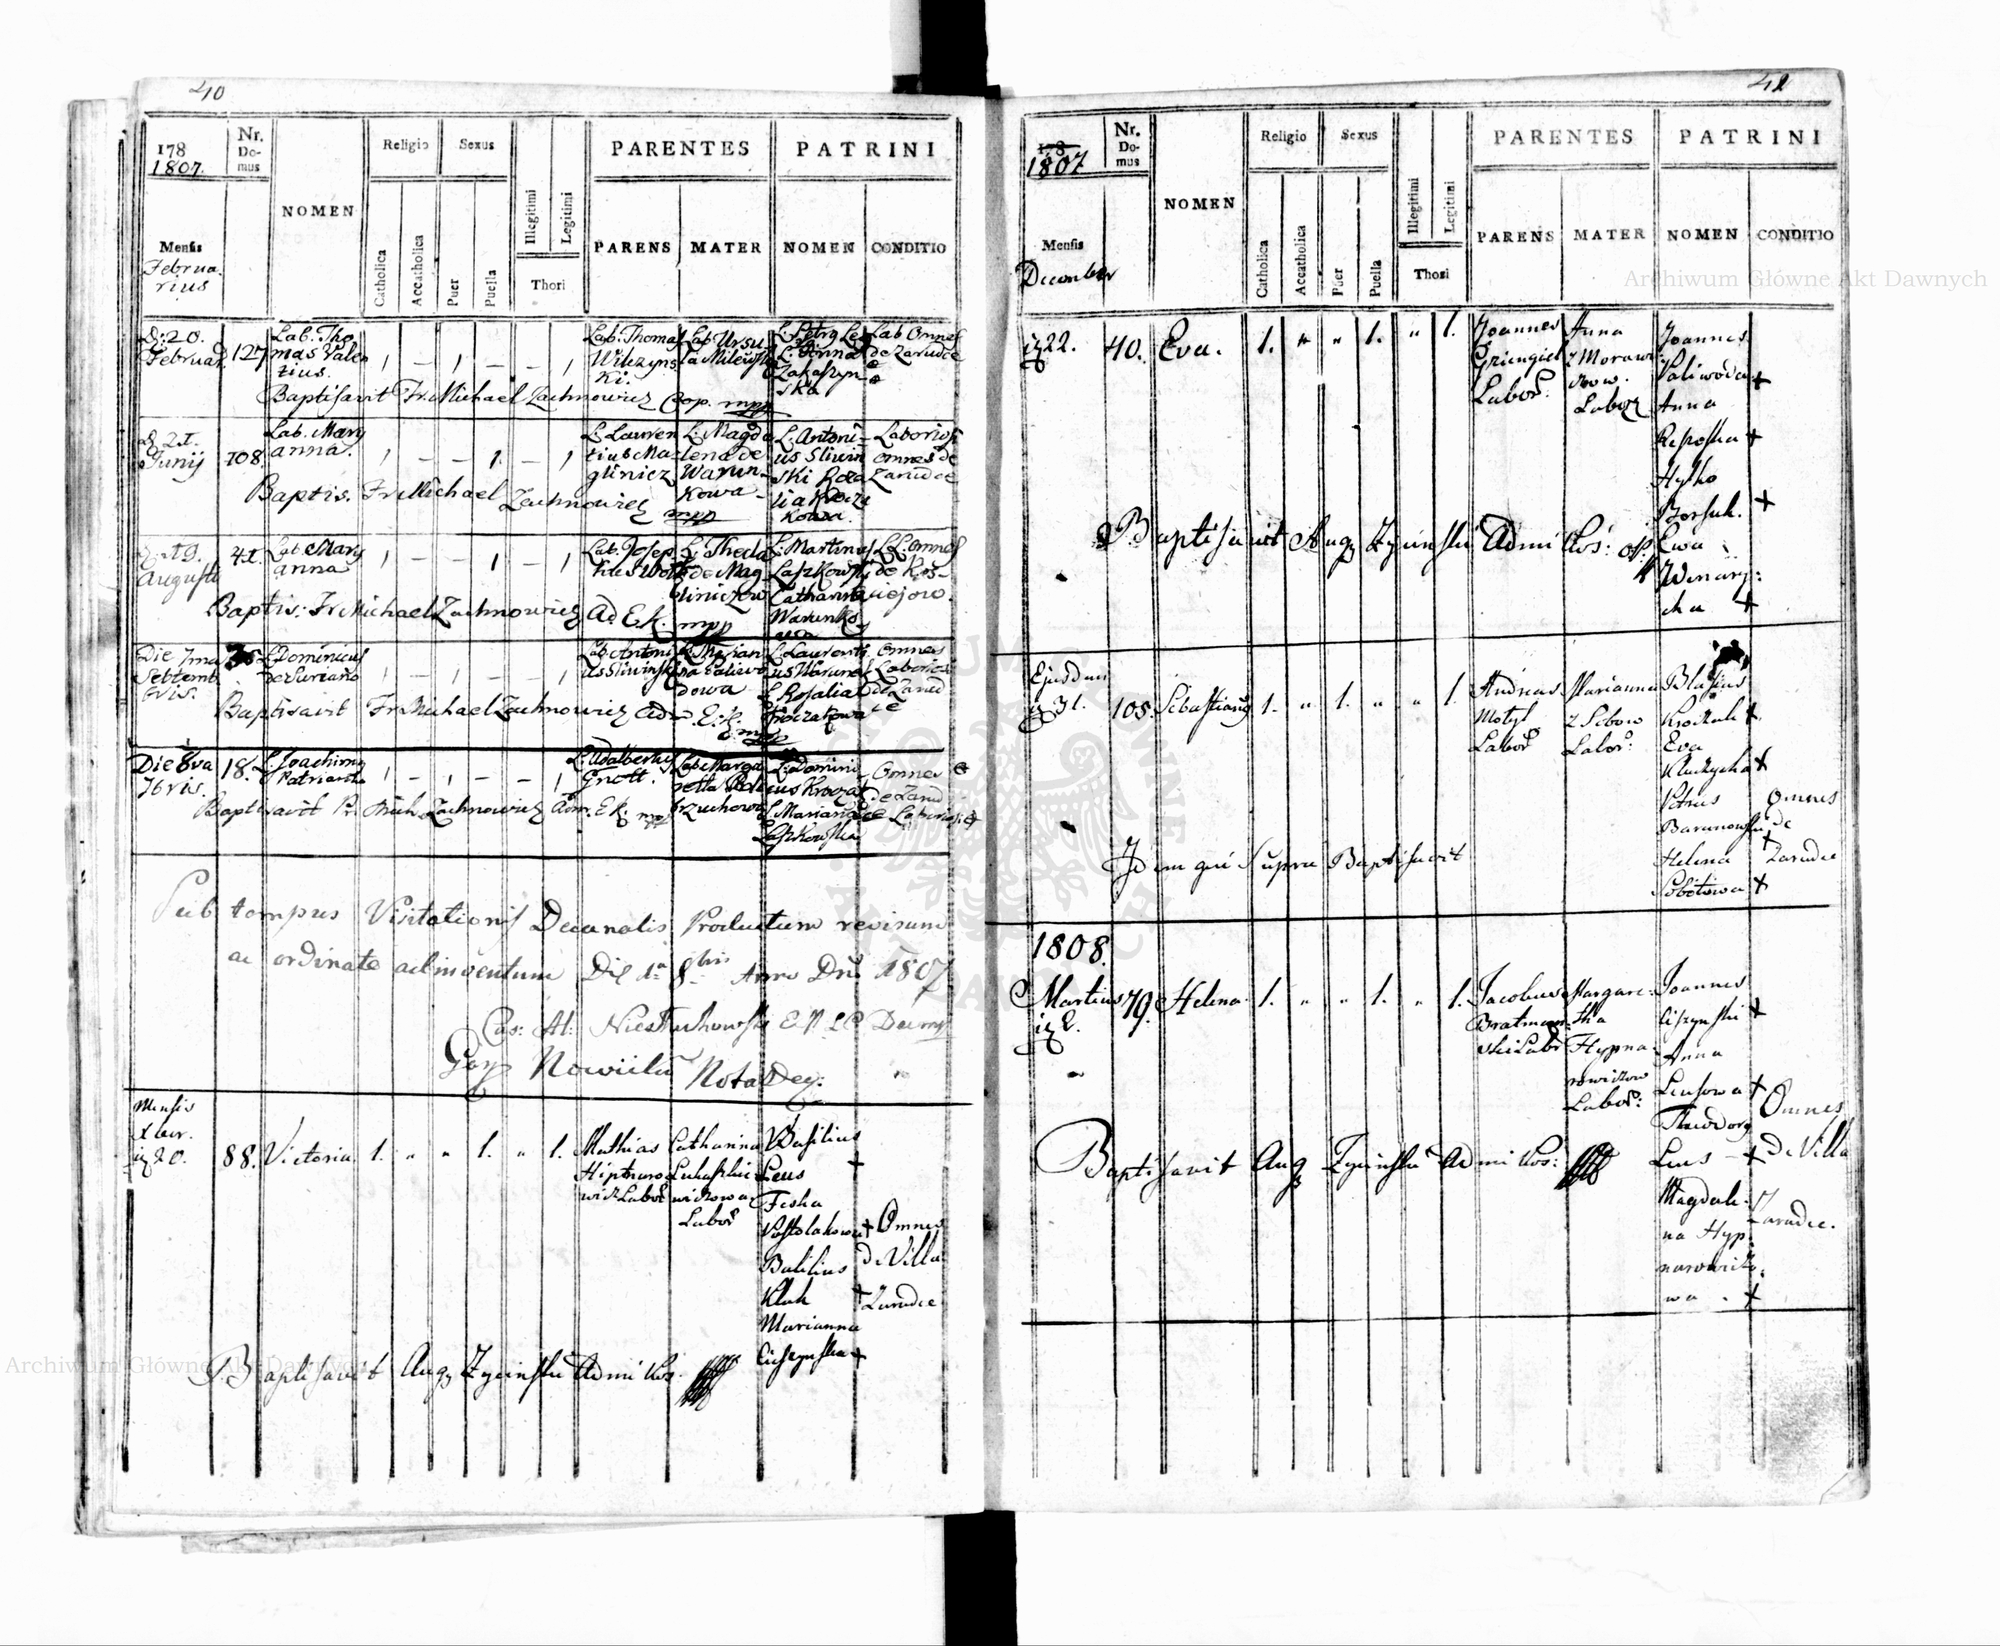 40
178
1807.
Nr. Domus
NOMEN
Religio
Sexus
Catholica
Accatholica
Puer
Puella
Illegitimi
Legitimi
Thori
PARENTES
PATRINI
PARENS
MATER
NOMEN
CONDITIO
Mensis
Februa
rius
D: 20.
Februar
127
Lab. Tho
mas Valen
tius.
1 – 1 – – 1
Lab. Thoma
Wilczyns
ki.
Lab Ursu
la Milewska
L. Anna
Zakaszyn
ska
Lab Omnes
de Zarudce
Baptisavit Fr. Michael Zachnowicz Coop. mpp
D 21.
Junij
108.
Lab. Mary
anna.
1 – – 1. – 1
L. Lauren
tius Ma
gliniez
L. Magda
lena de
Warun
kowa
L. Antoni
us Sliwin
ski Roza
lia Krocza
kowa.
Laboriosi
omnes de
Zarudce
Baptis. Fr Michael Zachnowicz mpp
D 19.
Augusti
41.
Lab. Mary
anna
1 – – 1 – 1
Lab. Josep
L. Thecla
de Mag
liniczow
L. Martinus
Laszkowski
Catharina
Warunko
wa
LL. omnes
de Kos
ciejow.
Baptis: Fr Michael Zachnowicz Ad E k. mpp
Die 7ma
Septemb
bris.
L. Dominicus
de Suriano
1 – 1 – – 1
Lab Antoni
us Sliwinski
L. Laurenti
us Warune
L. Rosalia
Kroczakowa
Omnes
Laborios
de Zarud
ce
Baptisavit Fr Michael Zachnowicz Adm. E. k. mpp
Die 8va
7bris.
18.
L. Joachimus
Patriarcha
1 – 1 – – 1
L. Adalbertus
Gnott.
Lab Marga
retha
brzuchowa
L. Domini
cus Kroczak
L. Marianna
Laszkowska
Omnes
de Zarud
ce Laboriosi
Baptisavit Fr. Mich. Zachnowicz Adm. E k. mpp
Sub tempus Visitationis Decanalis Productum revisum
ac ordinate adinventum Die 1a 8bris Anno Dni 1807
Nowicki Nota Dec:
Mensis
Xber.
20.
88.
Victoria
1. " " 1. " 1.
Mathias
Hipnaro
wicz Labor
Catharina
Lukaszkie
wiczowa
Labor
Basilius
Leus +
Feska
Postolakowa +
Basilius
Kluk +
Marianna
Ciszynska +
Omnes
de Villa
Zarudce
Baptisavit Aug. Zycinski Admi Kos:
41
178
1807
Nr. Domus
NOMEN
Religio
Sexus
Catholica
Accatholica
Puer
Puella
Illegitimi
Legitimi
Thori
PARENTES
PATRINI
PARENS
MATER
NOMEN
CONDITIO
Mensis
December
22.
40.
Eva.
1. " " 1. " 1.
Joannes
Griengiel
Labor.
Anna
z Moraw
Labor
Joannes
Paliwoda +
Anna
Reposha +
Hytko
Borsuk. +
Ewa
Winiary
cha +
Baptisavit Aug Zycinski Admi Kos:
Ejusdem
31.
105.
Sebastianus
1. " 1. " " 1.
Andreas
Motyl
Labor
Marianna
z Sobow
Labor:
Blasius
Kroczak +
Eva
Kluczycha +
Petrus
Baranowski +
Helena
Sobotowa +
Omnes
de
Zarudce
Idem qui supra Baptisavit
1808.
Martius
2.
79.
Helena
1. " " 1. " 1.
Jacobus
Bratmow
ski Labr
Margare
tha
Hypna
rowiczow
Labor:
Joannes
Ciszynski +
Anna
Leusowa +
Theodor
Leus – +
Magdale
na Hyp
narowiczo
wa . +
Omnes
de Villa
Zarudce.
Baptisavit Aug Zycinski Admi Kos:
Archiwum Główne Akt Dawnych
Archiwum Główne Akt Dawnych